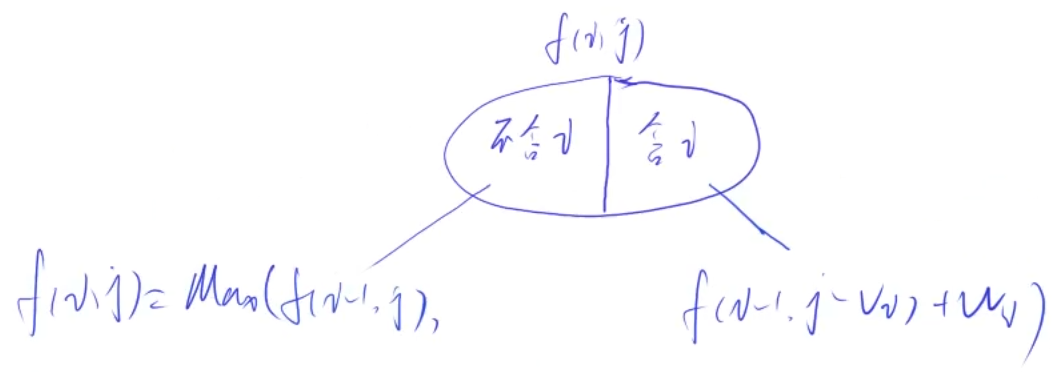 f(i,j)
不含i 含i
f(i,j)= Max(f(i-1,j), f(i-1,j-vi)+wi)